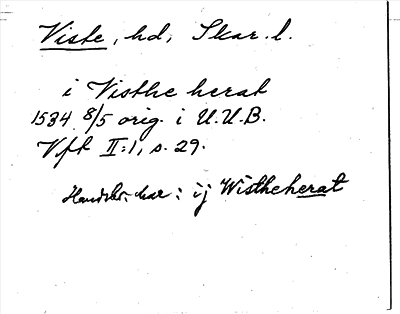 Viste, hd, Skar. l.
i Visthe herat
1534 8/5 orig. i U.U.B.
Vft II:1, s. 29.
Handskr. har: ij Wistheherat